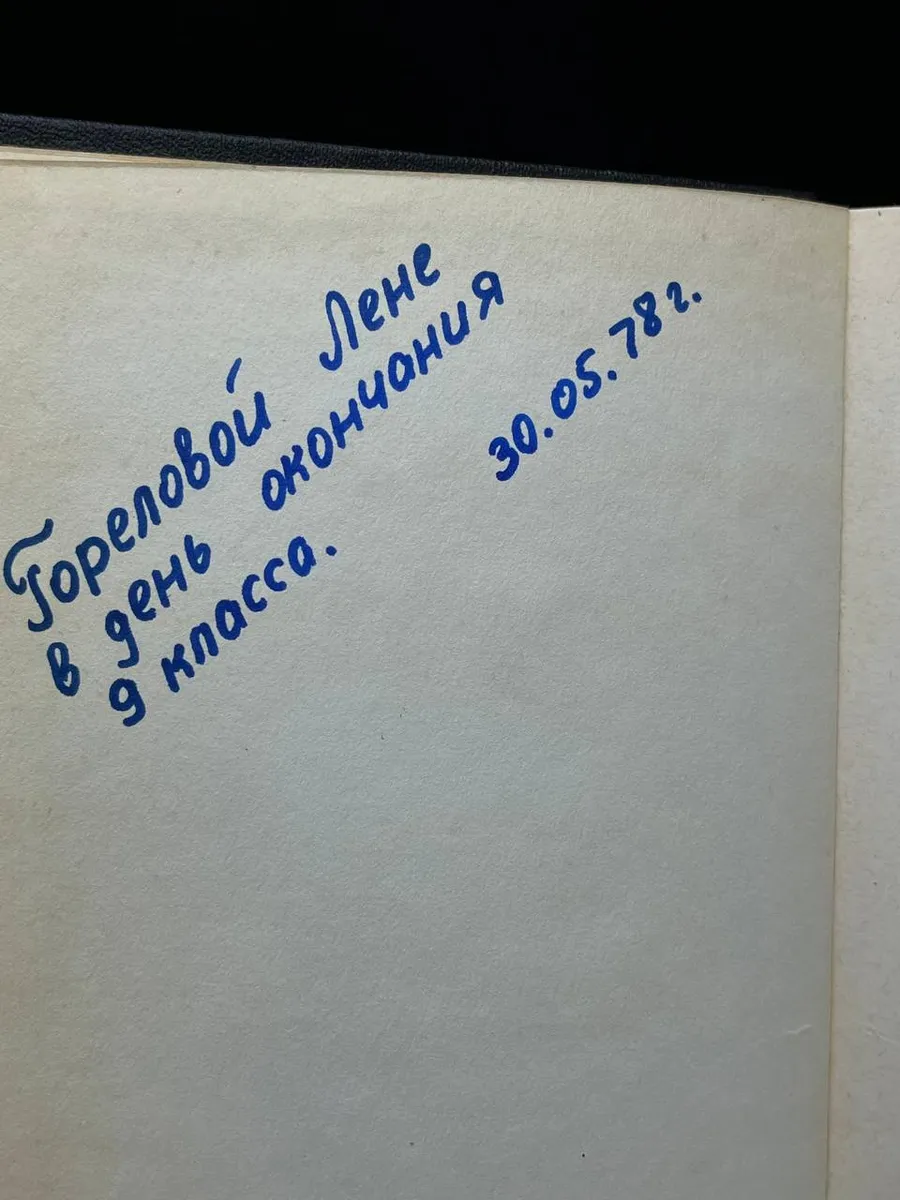 Гореловой Лене
в день окончания
9 класса.
30.05.78 г.